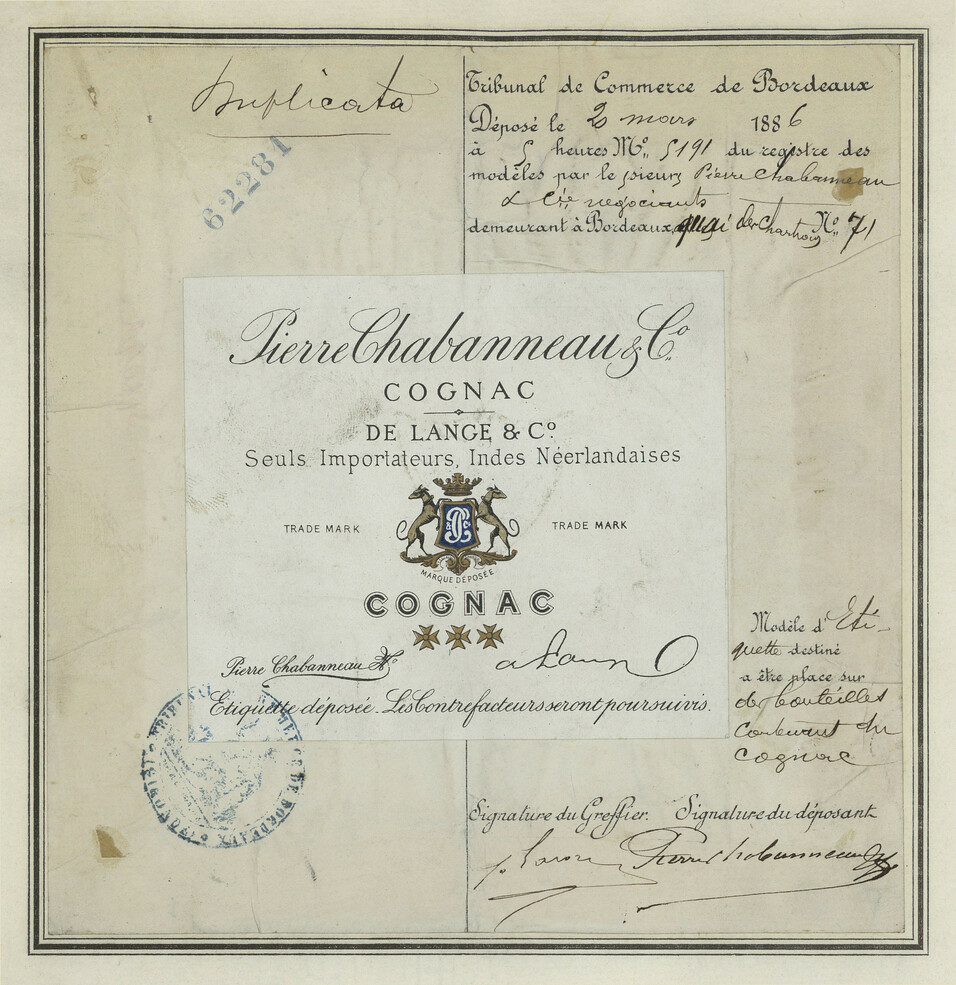 Duplicata
62281
Tribunal de Commerce de Bordeaux
Déposé le 2 mars 1886
à 5 heures No. 5191 du registre des
modèles par le sieurs Pierre Chabanneau
& Cie negociants
demeurant à Bordeaux quai des Chartrons No. 71
Pierre Chabanneau & Co.
COGNAC
DE LANGE & Co.
Seuls Importateurs, Indes Néerlandaises
TRADE MARK
TRADE MARK
MARQUE DÉPOSÉE
COGNAC
Pierre Chabanneau & Co
Etiquette déposée. Les Contrefacteurs seront poursuivis.
Modèle d'Eti-
quette destiné
a être place sur
des bouteilles
contenant du
cognac
TRIBUNAL DE COMMERCE DE BORDEAUX
Signature du Greffier. Signature du déposant
Pierre Chabanneau